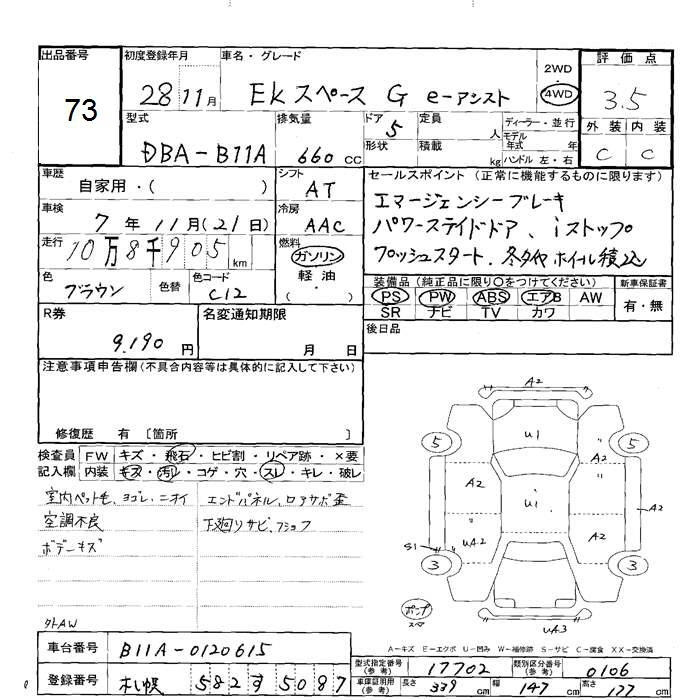 出品番号
73
初度登録年月
28 11月
車名・グレード
EKスペース G e-アシスト
2WD
4WD
評価点
3.5
外装 内装
C C
型式
DBA-B11A
排気量
660 CC
ドア
5
形状
定員
人
積載
kg
ディーラー・並行
モデル
年式 年
ハンドル 左・右
車歴
自家用・( )
シフト
AT
車検
7年 11月(21日)
冷房
AAC
走行
10万8千905 km
燃料
ガソリン
軽油
( )
色
ブラウン
色替
色コード
C12
セールスポイント (正常に機能するものに限ります)
エマージェンシーブレーキ
パワースライドドア、iストップ
プッシュスタート、冬タイヤホイール積込
装備品 (純正品に限り〇をつけてください)
PS PW ABS エアB AW
SR ナビ TV カワ
新車保証書
有・無
後日品
R券
9,190 円
名変通知期限
月 日
注意事項申告欄(不具合内容等は具体的に記入して下さい)
修復歴 有 〔箇所 〕
検査員
記入欄
FW キズ・飛石・ヒビ割・リペア跡・×要
内装 キズ・汚れ・コゲ・穴・スレ・キレ・破レ
室内ペット毛、ヨゴレ、ニオイ
空調不良
ボデーキズ
エンドパネル、ロアサポ歪
下廻りサビ、フショク
外AW
A2
U1
5
5
A2
A2
i
U1
A2
UA2
A2
S1
3
3
ポンプ
スペ
UA3
A-キズ E-エクボ U-凹み W-補修跡 S-サビ C-腐食 XX-交換済
車台番号
B11A-0120615
登録番号
札幌 582 す 5087
型式指定番号
(参考)
17702
類別区分番号
(参考)
0106
車庫証明用
(参考)
長さ 339 cm
幅 147 cm
高さ 177 cm